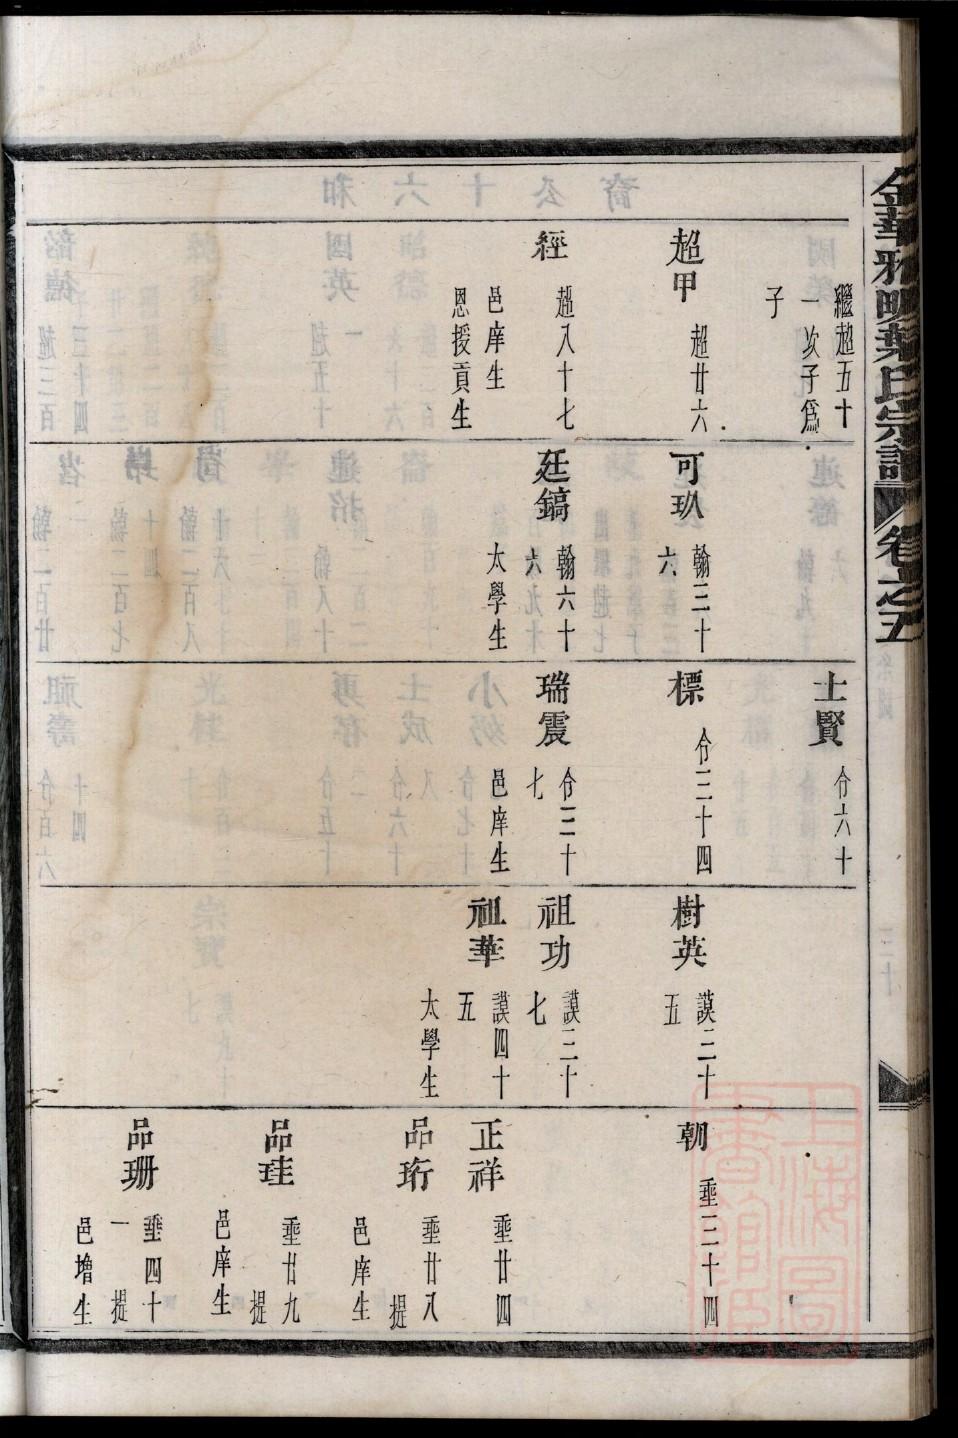 金華雅㘭葉氏宗譜 卷之五
繼超五十
一次子爲
子
超甲
超廿六
經
超八十七
邑庠生
恩授貢生
可玖
翰三十
六
廷鎬
翰六十
六
太學生
士賢
㑹六十
標
㑹三十四
瑞震
㑹三十
七
邑庠生
樹英
謨三十
五
祖功
謨三十
七
祖華
謨四十
五
太學生
朝
垂三十四
正祥
垂廿四
品珩
垂廿八
提
邑庠生
品珪
垂廿九
提
邑庠生
品珊
垂四十
一
提
邑增生
上海圖書館藏